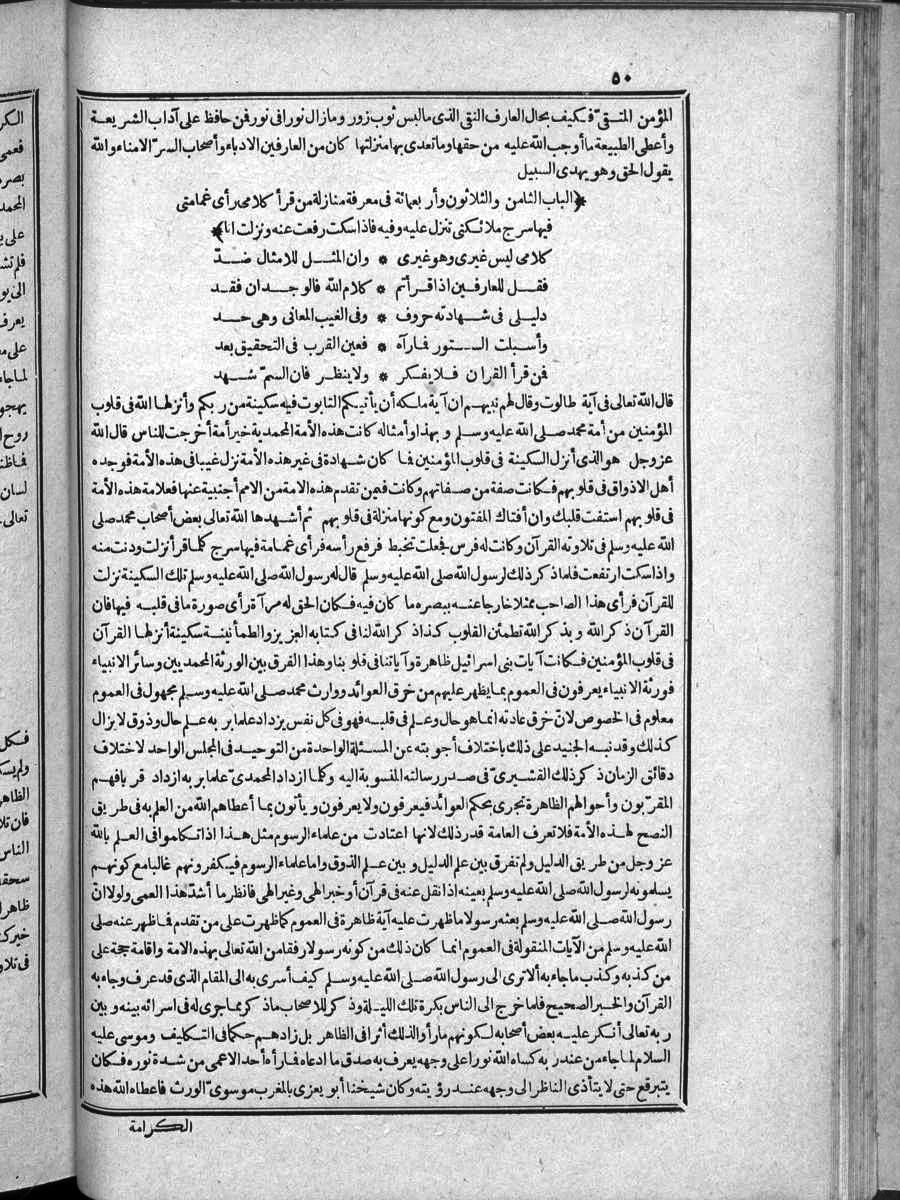 ٥٠
المؤمن المتقىّ فكيف بحال العارف النقى الذى مالبس ثوب زور ومازال نورا فى نور فن حافظ على آداب الشريعة
وأعطى الطبيعة ما أوجب الله عليه من حقها وما تعدى بها منزلتها كان من العارفين الادباء وأصحاب السرّ الامناء والله
يقول الحق وهو يهدى السبيل
﴿الباب الثامن والثلاثون وأربعمائة فى معرفة منازلة من قرأ كلامى رأى غمامتى
فيها سرج ملائكتى تنزل عليه وفيه فاذا سكت رفعت عنه ونزلت انا﴾
كلامى ليس غيرى وهو غيرى * وان المثل للامثال ضدّ
فقل للعارفين اذا قرأتم * كلام الله فالوجدان فقد
دليلى فى شهادته حروف * وفى الغيب المعانى وهى حد
وأسبلت الستور فما رآه * فعين القرب فى التحقيق بعد
فن قرأ القران فلا يفكر * ولا ينظر فان السمّ شهد
قال الله تعالى فى آية طالوت وقال لهم نبيهم ان آية ملكه أن يأتيكم التابوت فيه سكينة من ربكم وأنزلها الله فى قلوب
المؤمنين من أمة محمد صلى الله عليه وسلم وبهذا وأمثاله كانت هذه الأمة المحمدية خير أمة أخرجت للناس قال الله
عز وجل هو الذى أنزل السكينة فى قلوب المؤمنين فما كان شهادة فى غير هذه الأمة نزل غيبا فى هذه الأمة فوجده
أهل الاذواق فى قلوبهم فكانت صفة من صفاتهم وكانت فمين تقدم هذه الامة من الامم أجنبية عنها فعلامة هذه الأمة
فى قلوبهم استفت قلبك وان أفتاك المفتون ومع كونها منزلة فى قلوبهم ثم أشهدها الله تعالى بعض أصحاب محمد صلى
الله عليه وسلم فى تلاوته القرآن وكانت له فرس فجعلت تخبط فرفع رأسه فرأى غمامة فيها سرج كلما قرأ نزلت ودنت منه
واذا سكت ارتفعت فلما ذكر ذلك لرسول الله صلى الله عليه وسلم قال له رسول الله صلى الله عليه وسلم تلك السكينة نزلت
للقرآن فرأى هذا الصاحب ممثلا خارجا عنه ببصره ما كان فيه فكان الحق له مرآة رأى صورة ما فى قلبه فيها فان
القرآن ذكر الله وبذكر الله تطمئن القلوب كذا ذكر الله لنا فى كتابه العزيز والطمأنينة سكينة أنزلها القرآن
فى قلوب المؤمنين فكانت آيات بنى اسرائيل ظاهرة وآياتنا فى قلوبنا وهذا الفرق بين الورثة المحمديين وسائر الانبياء
فورثة الانبياء يعرفون فى العموم بما يظهر عليهم من خرق العوائد ووارث محمد صلى الله عليه وسلم مجهول فى العموم
معلوم فى الخصوص لانّ خرق عادته انما هو حال وعلم فى قلبه فهو فى كل نفس يزداد علما بربه علم حال وذوق لايزال
كذلك وقد نبه الجنيد على ذلك باختلاف أجوبته عن المسئلة الواحدة من التوحيد فى المجلس الواحد لاختلاف
دقائق الزمان ذكر ذلك القشيرىّ فى صدر رسالته المنسوبة اليه وكلما ازداد المحمدىّ علما بربه ازداد قربا فهم
المقرّبون وأحوالهم الظاهرة تجرى بحكم العوائد فيعرفون ولا يعرفون ويأتون بما أعطاهم الله من العلم به فى طريق
النصح لهذه الأمة فلا تعرف العامة قدر ذلك لانها اعتادت من علماء الرسوم مثل هذا اذا تكلموا فى العلم بالله
عز وجل من طريق الدليل ولم تفرق بين علم الدليل وبين علم الذوق واما علماء الرسوم فيكفرونهم غالبا مع كونهم
يسلمونه لرسول الله صلى الله عليه وسلم بعينه اذا نقل عنه فى قرآن أو خبر الهى وغير الهى فانظر ما أشدّ هذا العمى ولولا انّ
رسول الله صلى الله عليه وسلم بعثه رسولا ما ظهرت عليه آية ظاهرة فى العموم كما ظهرت على من تقدم فما ظهر عنه صلى
الله عليه وسلم من الآيات المنقولة فى العموم انما كان ذلك من كونه رسولا رفقا من الله تعالى بهذه الامة واقامة حجة على
من كذبه وكذب ما جاء به ألا ترى الى رسول الله صلى الله عليه وسلم كيف أسرى به الى المقام الذى قد عرف وجاء به
القرآن والخبر الصحيح فلما خرج الى الناس بكرة تلك الليلة وذكر للاصحاب ما ذكر مما جرى له فى اسرائه بينه وبين
ربه تعالى أنكر عليه بعض أصحابه لكونهم ما رأوا لذلك أثرا فى الظاهر بل زادهم حكما فى التكليف وموسى عليه
السلام لما جاء من عند ربه كساه الله نورا على وجهه يعرف به صدق ما ادعاه فما رأه أحد الا عمى من شدة نوره فكان
يتبرقع حتى لا يتأذى الناظر الى وجهه عند رؤيته وكان شيخنا أبو يعزى بالمغرب موسوىّ الورث فأعطاه الله هذه
الكرامة